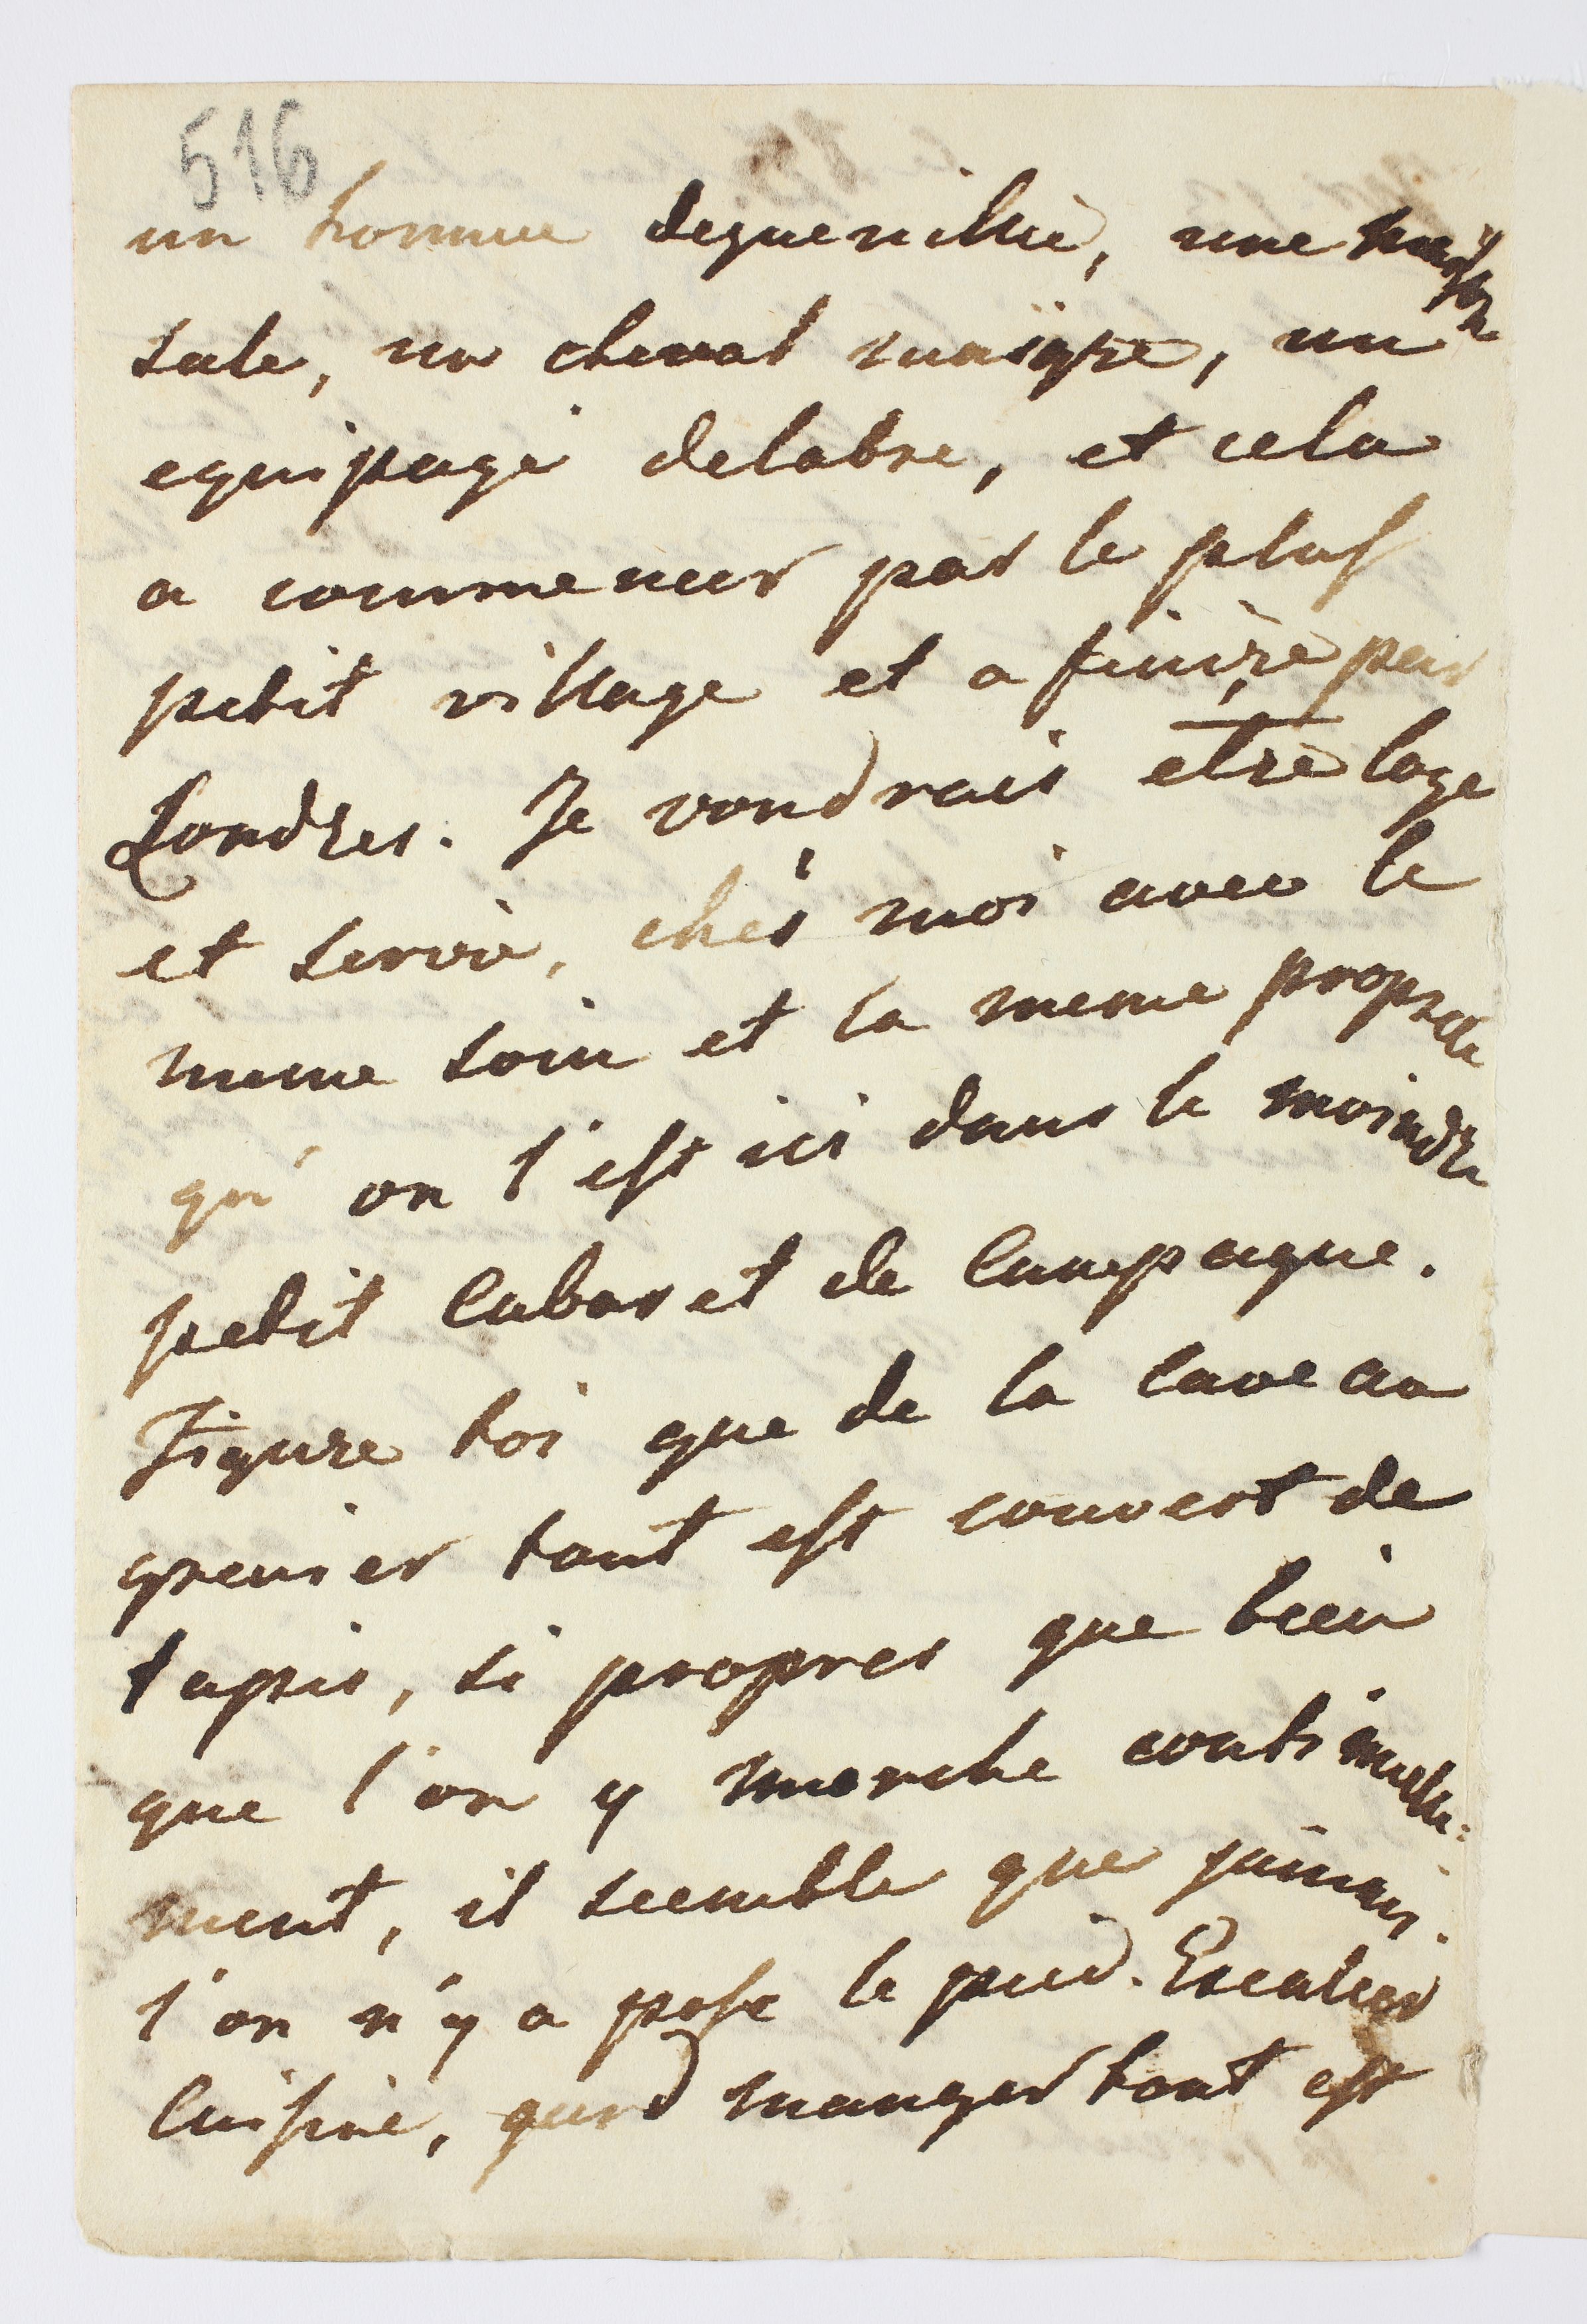 516
un homme deguenillié, une maison
sale, un cheval maigre, un
equipage delabre, et cela
a commencer par le plus
petit village et a finire par
Londres. Je voudrais etre loge
et servi, chés moi avec le
meme soin et la meme proprete
qu'on l'est ici dans le moindre
petit Cabaret de Campagne.
Figure toi que de la cave au
grenier tout est couvert de
tapis, si propres que bien
que l'on y marche continuelle:
ment, il semble que jamais
l'on n'y a posé le pied. Escalier
Cuisine, gard manger tout est